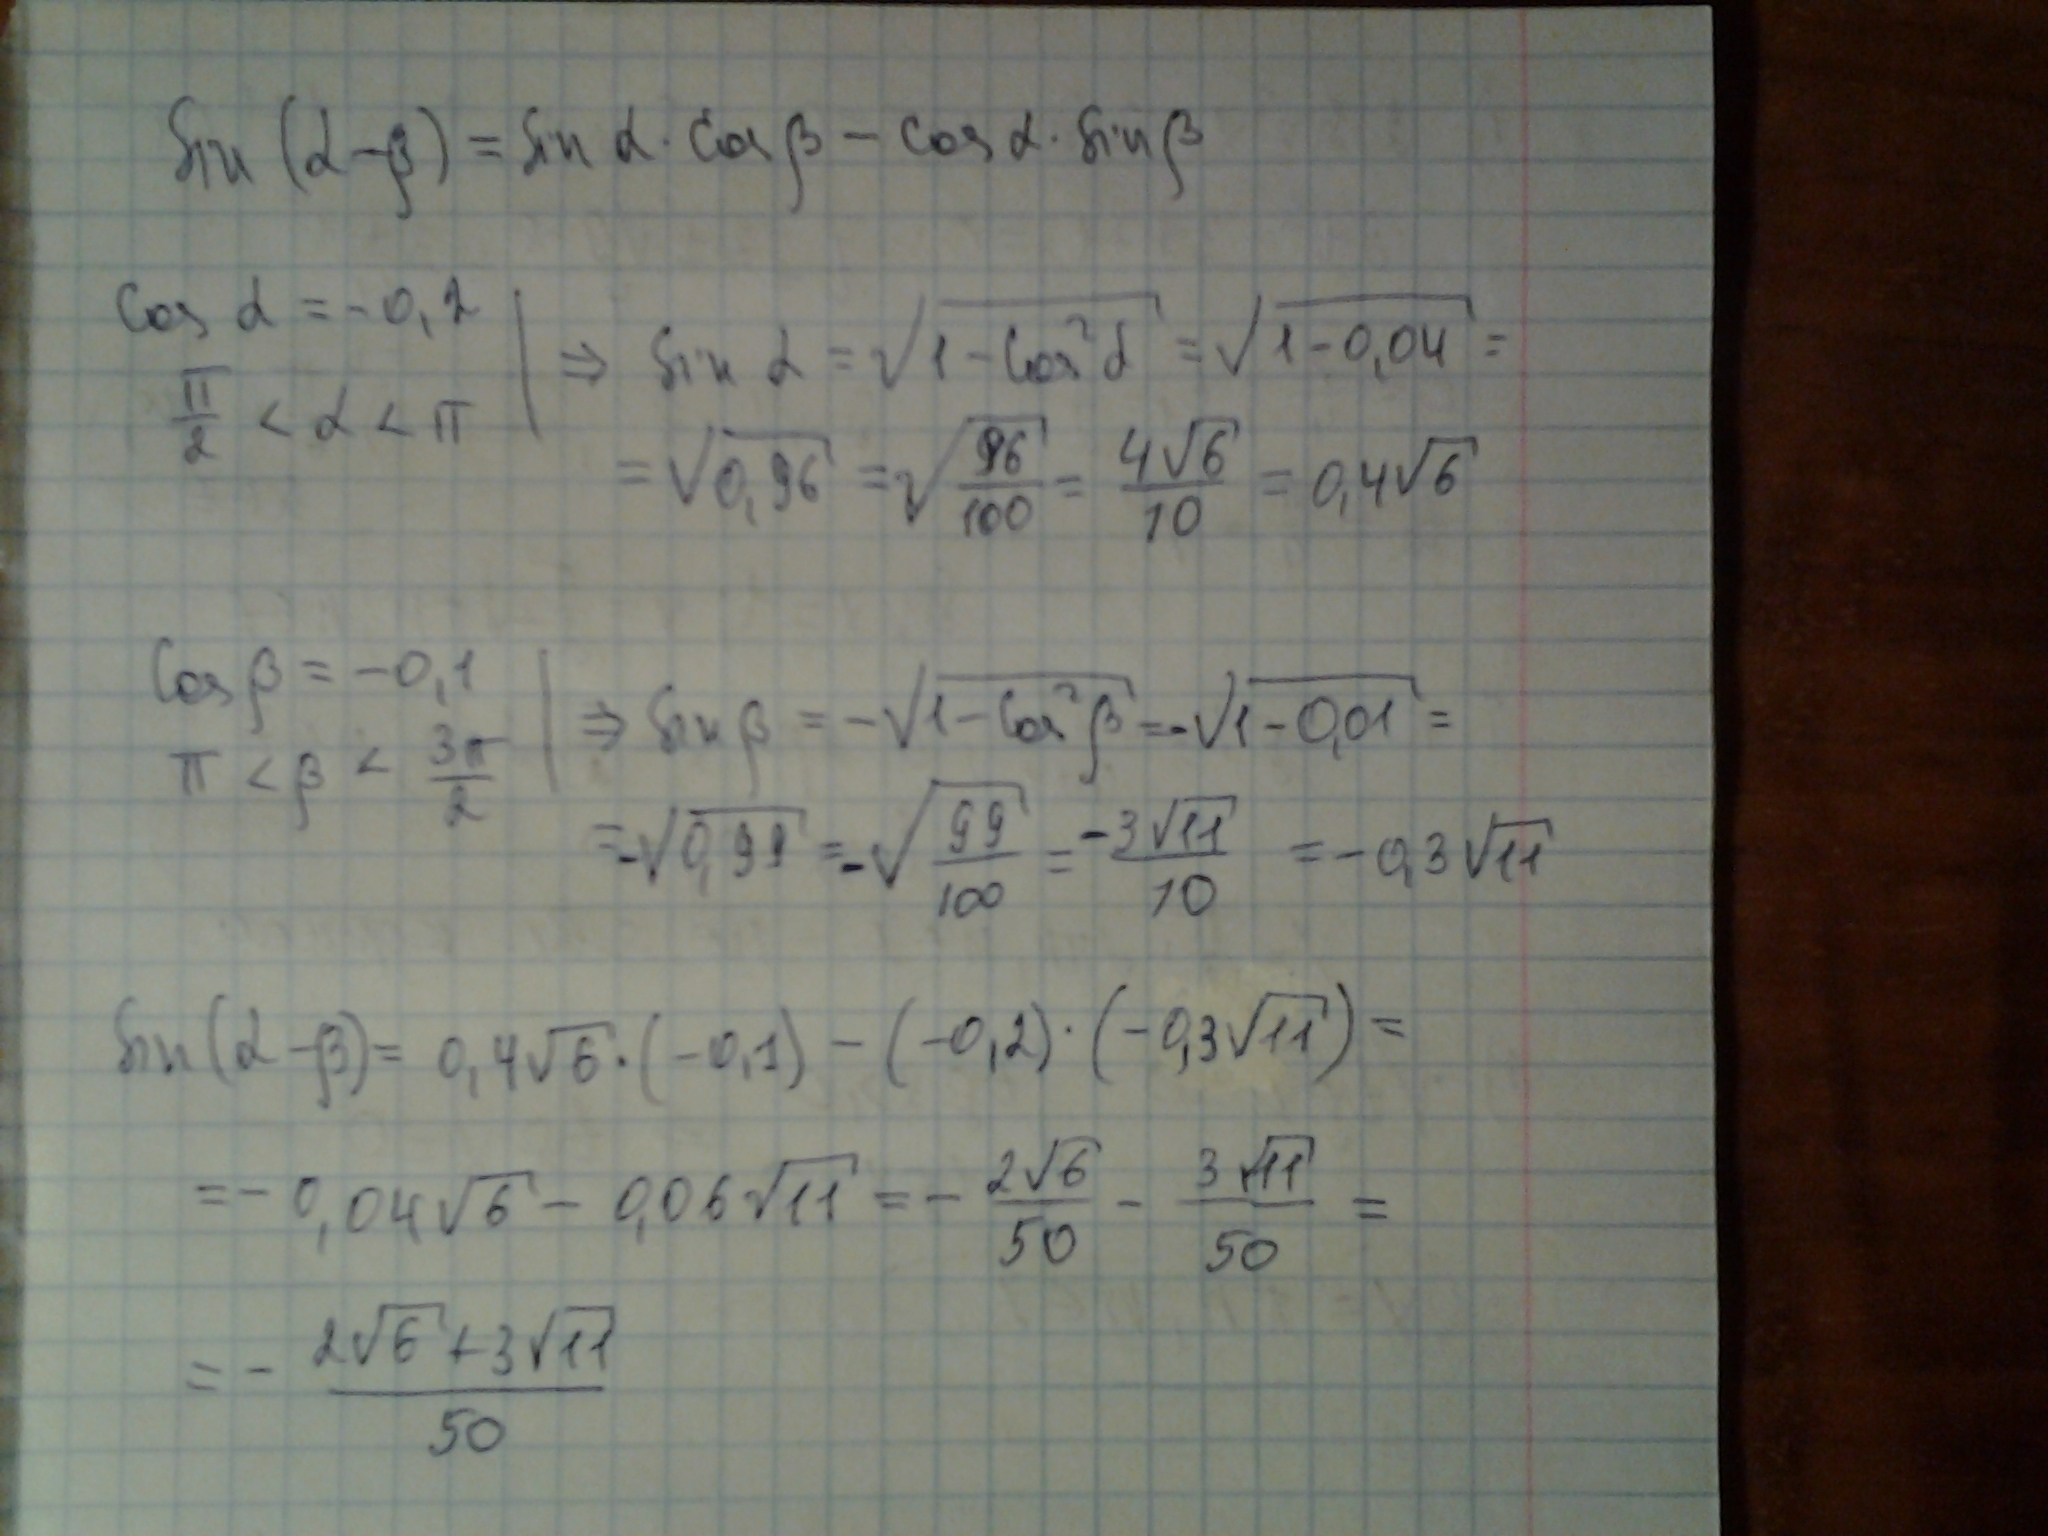 sin (α-β) = sin α · cos β - cos α · sin β
cos α = -0,2
π/2 < α < π
⇒ sin α = √(1 - cos²α) = √(1 - 0,04) =
= √(0,96) = √(96/100) = 4√6/10 = 0,4√6
cos β = -0,1
π < β < 3π/2
⇒ sin β = -√(1 - cos²β) = -√(1 - 0,01) =
= -√(0,99) = -√(99/100) = -3√11/10 = -0,3√11
sin (α-β) = 0,4√6 · (-0,1) - (-0,2) · (-0,3√11) =
= -0,04√6 - 0,06√11 = - 2√6/50 - 3√11/50 =
= - (2√6 + 3√11)/50